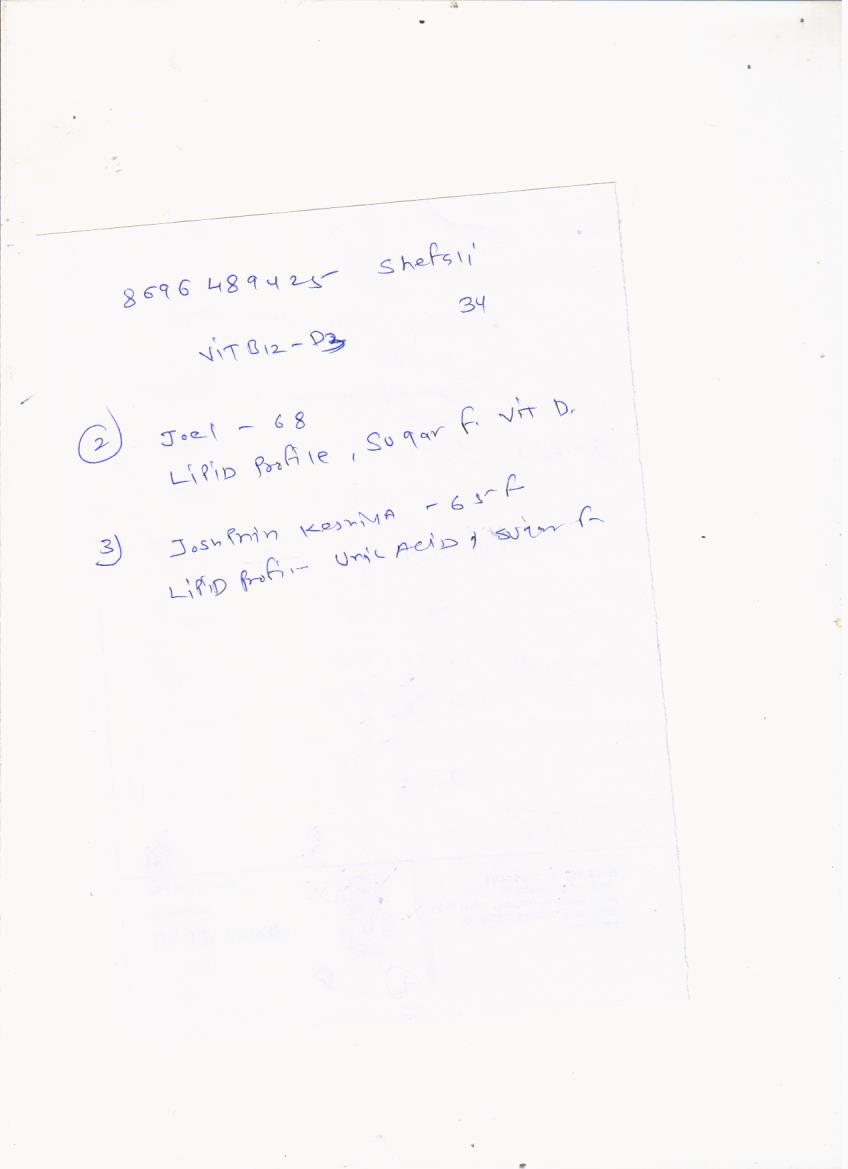 8696489425 Shefali
34
VIT B12 - D3
2 Joel - 68
LIPID Profile, Sugar f. Vit D.
3) - 65 f
LIPID Uric ACID, f